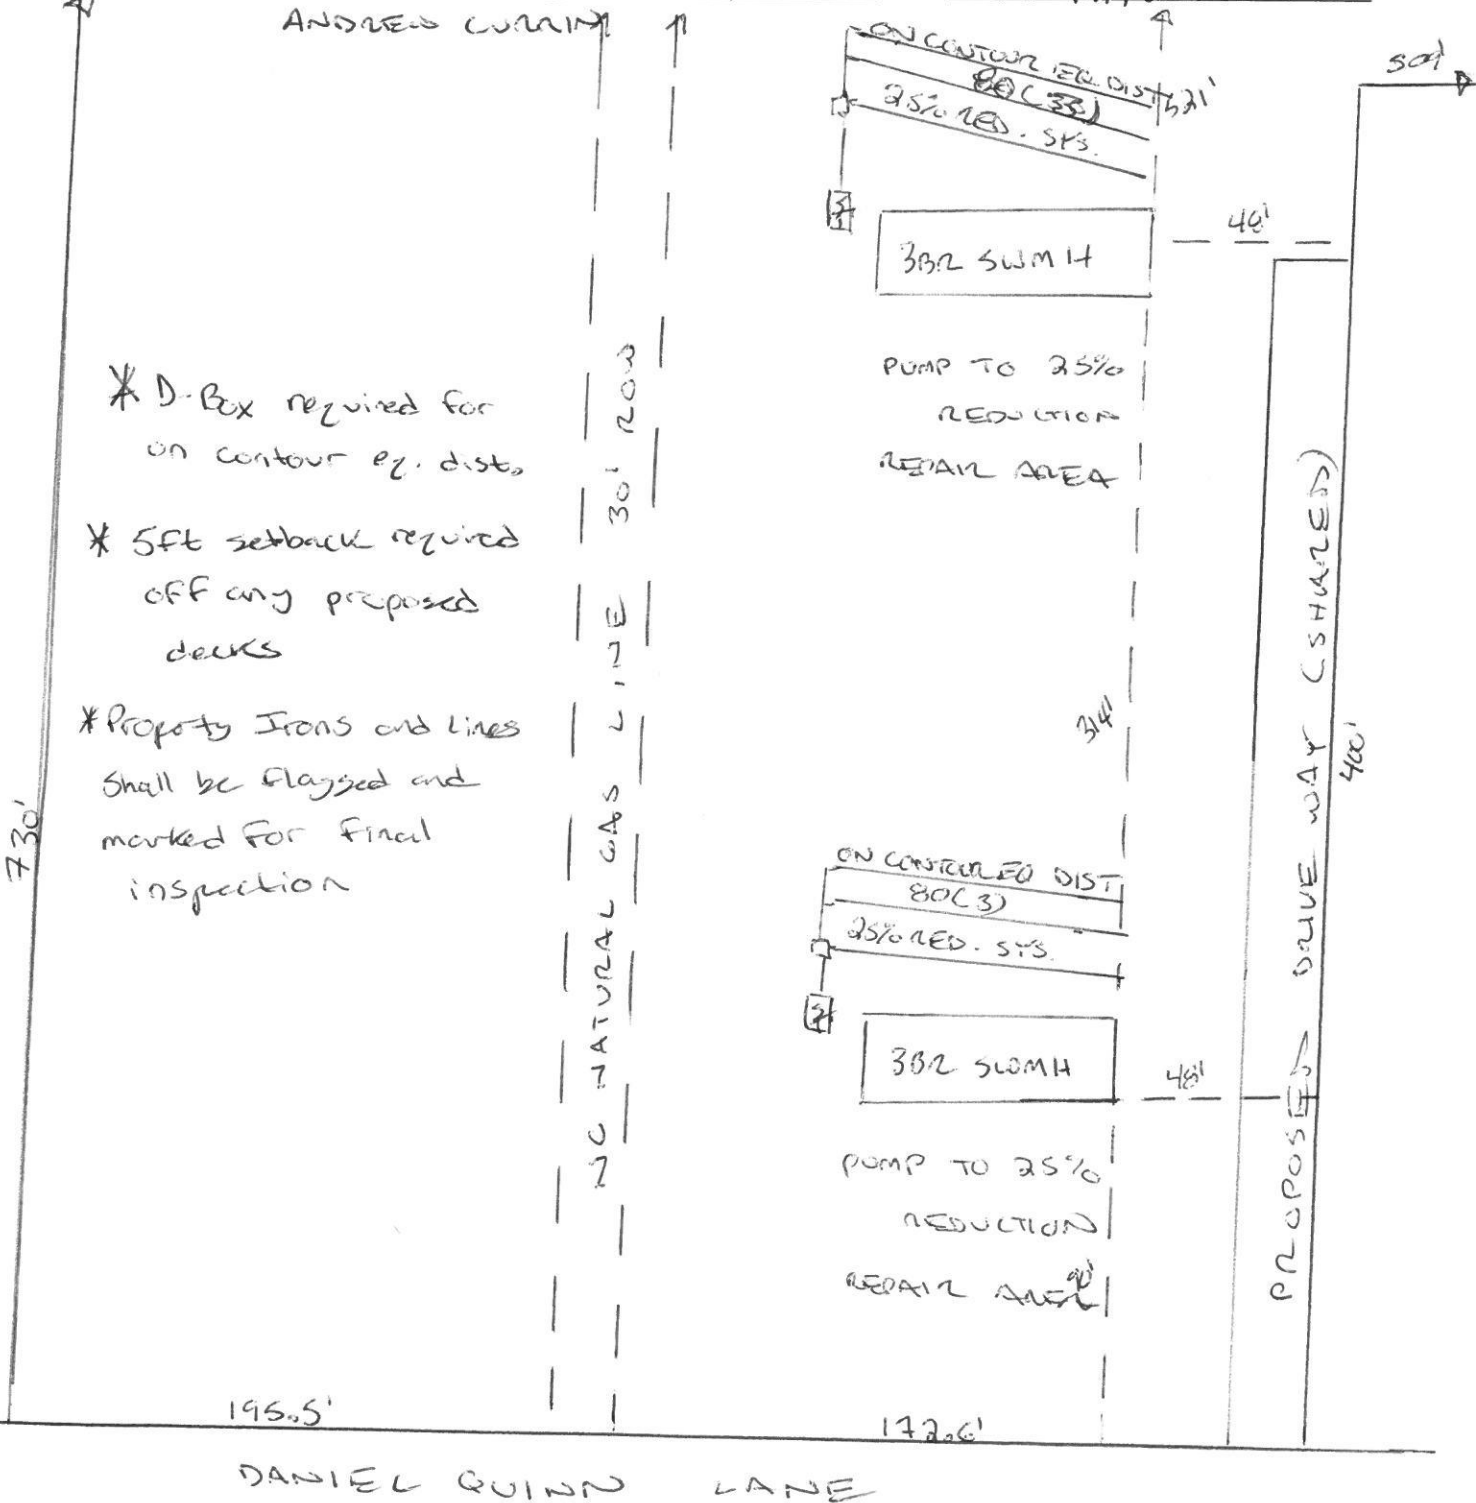 ANDREW CURRIN
ON CONTOUR EQ. DIST
80(33)
25% RED. SYS.
321'
3BR SWMH
48'
PUMP TO 25%
REDUCTION
REPAIR AREA
* D-Box required for
on contour eq. dist.
* 5ft setback required
off any proposed
decks
* Property Irons and Lines
shall be flagged and
marked for final
inspection
730'
NC NATURAL GAS LINE 30' ROW
314'
PROPOSED DRIVE WAY (SHARED)
400'
ON CONTOUR EQ DIST
80(3)
25% RED. SYS.
3BR SWMH
48'
PUMP TO 25%
REDUCTION
REPAIR AREA
90'
195.5'
172.6'
DANIEL QUINN LANE